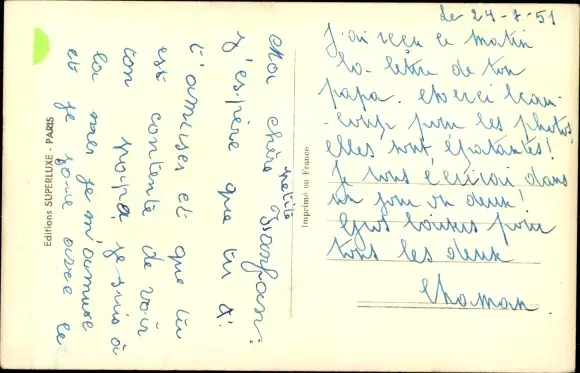 Ma chère petite
J'espère que tu
t'amuses et que tu
est contente de voir
ton papa, je suis à
la mer je m'amuse
et je joue avec le
Editions SUPERLUXE - PARIS
Imprimé en France
J'ai reçu ce matin
la lettre de ton
papa. Merci beau-
-coup pour les photos
elles sont épatantes!
Je vous écrirai dans
un jour ou deux!
Gros baisers pour
tous les deux
Maman.